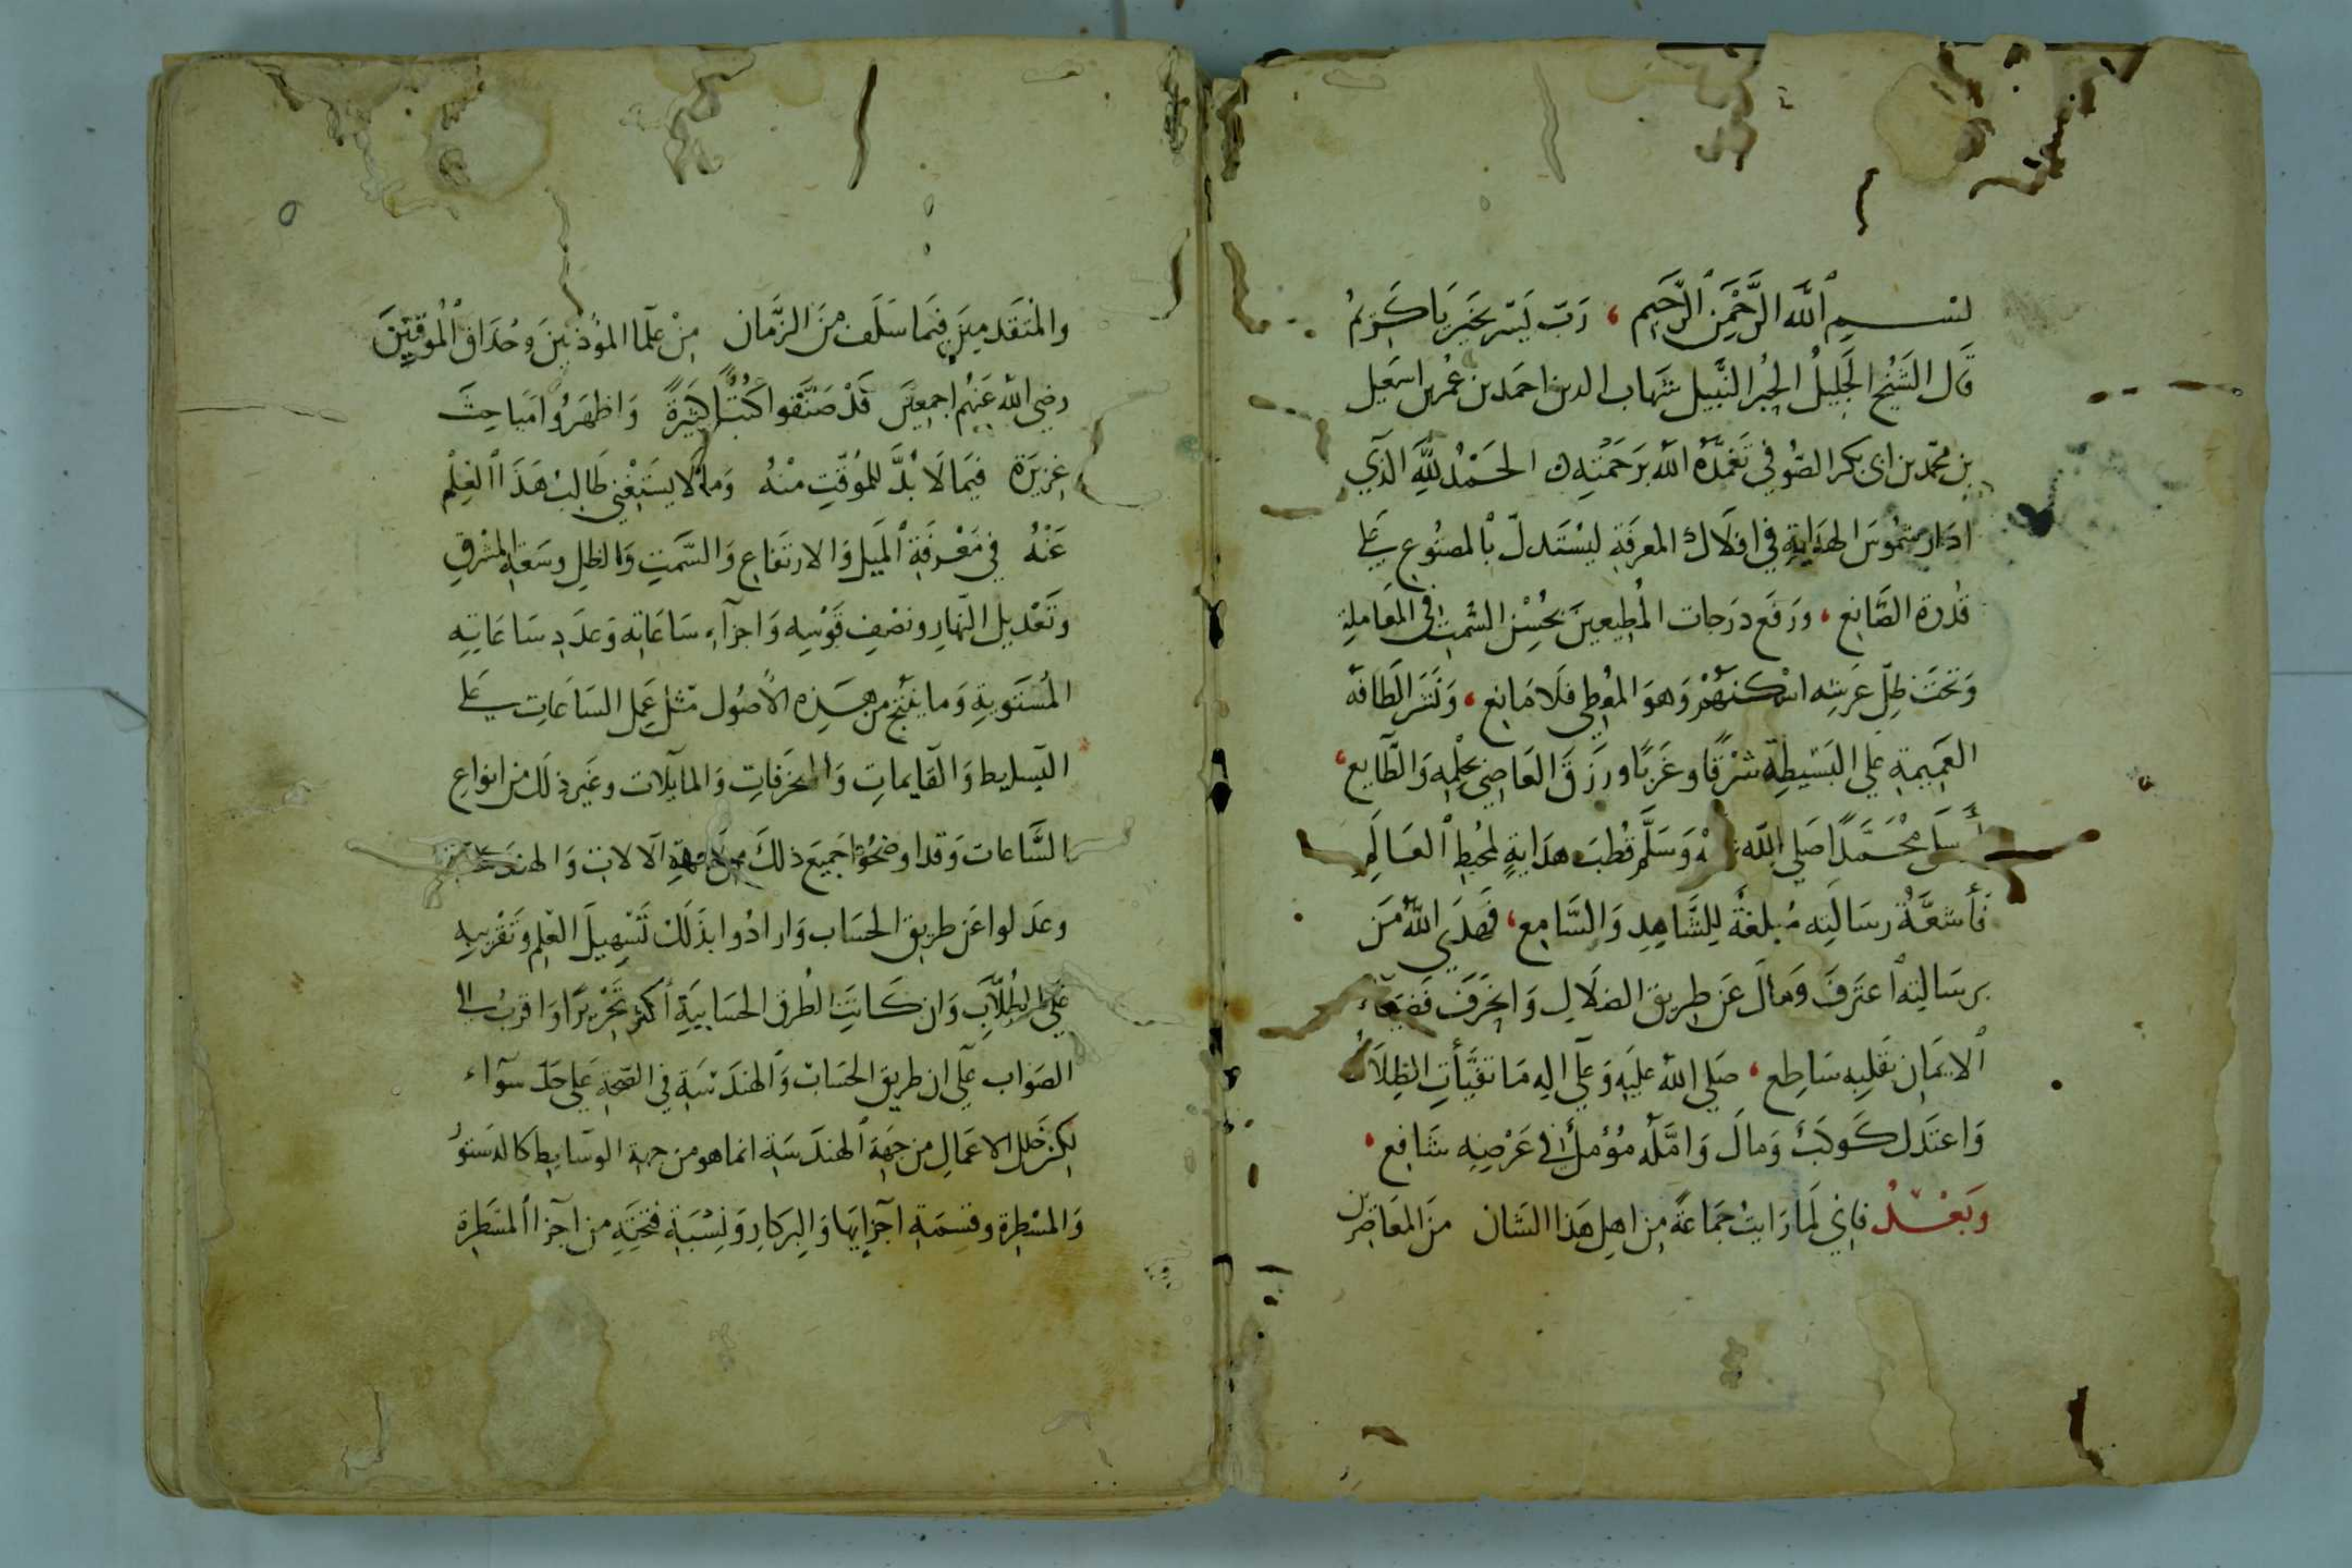 بســـم ٱلله الرَّحْمَنِ ٱلرَّحِيم ، رَبّ يَسّر بخَير يَا كَرِيمُ
قَال الشَيْخ الجَلِيلُ الحِبُر النَّبيل شهَاب الدين احمَد بن عُمر بن اسمَعيل
بن محمّد بن ابى بكر الصّوفي تَغمّدَهُ الله برَحمَتِهِ الحَمْدُ للَّهِ الذَي
ادَار شمُوسَ الهدَايةِ في افلَاك المعرفَةِ ليُسْتَدلّ بْالمصنُوع عَلى
قدُرة الصَّانِع ، ورَفَع درَجات المُطِيعينَ بحُسْن السَّمتِ في المعَاملةِ
وَتحَتَ ظِلّ عَرشِه اسْكنهُمْ وَهوَ المُعِطي فلَا مَانِع ، وَنَشَر الطَافَه
العَمِيمةِ علي البَسيْطِة شرْقًا وغَربًا ورَزقَ العَاصِي بحِلْمِه وَالطَّايع ،
أرسَل محْـمَّدًا صَلي الله وَسَلَّمَ قُطبَ هدَايةٍ لمحُيطِ ٱلعَـالَمِ
فَأشعَّةُ رسَالَتِه مُبلغةٌ لِلشَّاهِدِ وَالسَّامِع ، فَهدَي اللهُ مَن
برسَالتِه ٱعتَرفَ وَمالَ عَن طريق الضلَالِ وَانحَرفَ
ٱلايمَان بقَلبِه سَاطِع ، صَلي اللهُ علَيهِ وَعَلي الِه مَا تفيَّأَتِ الظِلَال
وَاعتدَل كَوكَبٌ وَمالَ وَامَّلَه مُؤمِلٌ في عَرْضِهِ شَافِع ،
وبَعْـــدُ فاِني لمَا رَايتُ جَمَاعةً مِن اهِل هَذا الشَان منَ المعَاصِرين
والمتَقدميَنِ فيَما سَلَف منَ الزَّمان مِنْ علَما المؤذنينَ وحُذاق ٱلمُوقتينَ
رضي الله عَنهُم اجمعيَن قَدْ صَنَّفوا كُتبًا كثيَرةً وَاظهَرُوا مَباحِثَ
غزيرَة فيَما لَا بُدَّ للمُوقّتِ منْهُ وَمَا لا يستَغْني طَالِبُ هَذَا ٱلعِلْم
عَنْهُ في مَعْرفَةِ ٱلمَيلِ وَالارتفَاعِ وَالسّمَتِ وَالظِلِ وسَعةِ المشْرقِ
وتَعْديلِ النّهارِ ونصْفِ قَوْسِه وَاجزآءِ سَاعَاتِه وَعدَدِ سَاعَاتِهِ
المُستَويةِ وَما ينتَج من هـَذِه الأصُول مثل عَمِل السَاعَاتِ عَلى
البَسايط وَالقَايماتِ وَالمنحَرفَاتِ وَالمايَلات وغَير ذلَك من انواعِ
السَّاعات وَقد اوضحُوا جَميَع ذلكَ من جهَةِ الآلات وَالهندَسَة
وعدَلوا عَن طريق الحسَاب وَارادُوا بذَلَك تَسْهِيلَ العْلم وتَقْريبِه
عَلى الطُلَّاب وَان كَانتِ الطُرق الحسَابيَةِ أكثر تَحْريرًا وَاقرَبُ الي
الصَواب عَلَي ان طريق الحسَاب وَالهندَسَةِ في الصّحةِ عَلي حَدّ سَوآء
لكِن خَلل الاعمَالِ من جهَةِ ٱلهندَسَةِ انما هو من جهةِ الوسَايط كالدستوُر
وَالمسْطرة وقسِمَةِ آجزايهَا وَالبِركَارِ وَنِسْبَةِ فتحَتِهِ من آجزا ٱلمسَطرة